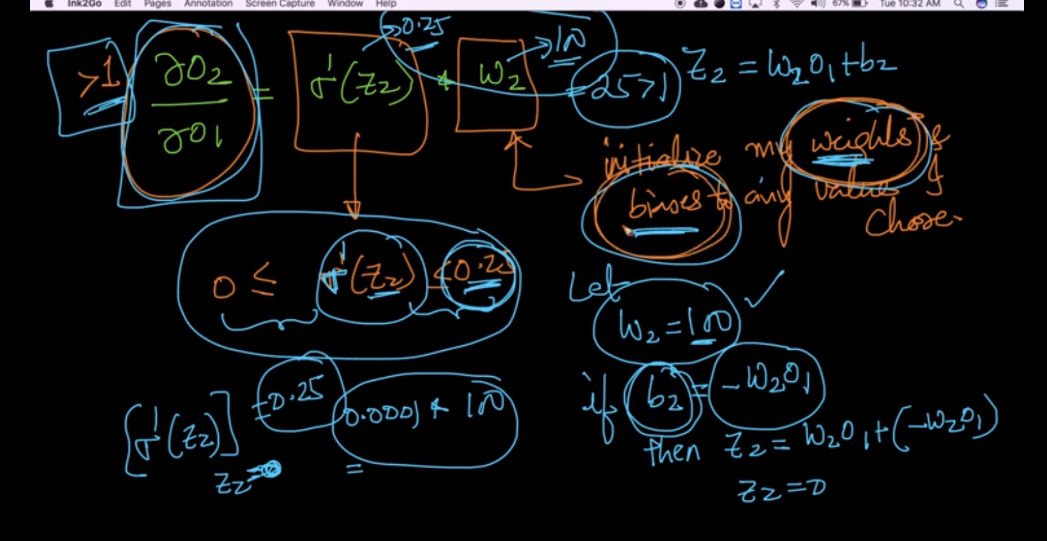 Ink2Go Edit Pages Annotation Screen Capture Window Help 67% Tue 10:32 AM
>1 ∂O2/∂O1 = σ'(z2) * w2
→0.25
→100
= 25>1
z2 = w2O1+b2
initialize my weights &
biases to any values I
chose.
0 ≤ σ'(z2) ≤0.25
Let
w2=100 ✓
if b2 = -w2O1
then z2 = w2O1+(-w2O1)
z2=0
[σ'(z2)] =0.25
z2=0
0.0001 * 100
=